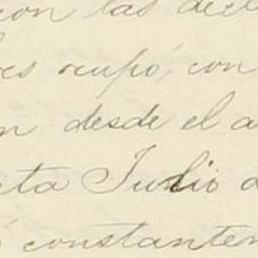 con las decl
es ocupó, con
n desde el a
ta Julio d
ó constantem